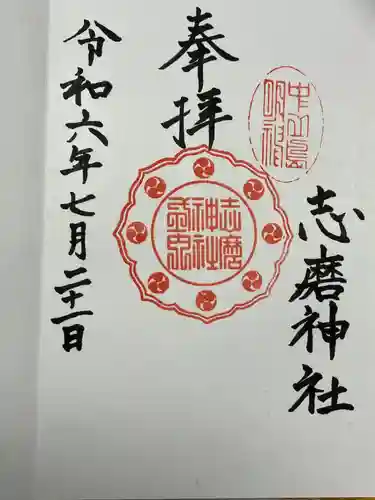 奉拝
志磨神社
令和六年七月二十一日
中山島
明神
志磨
神社